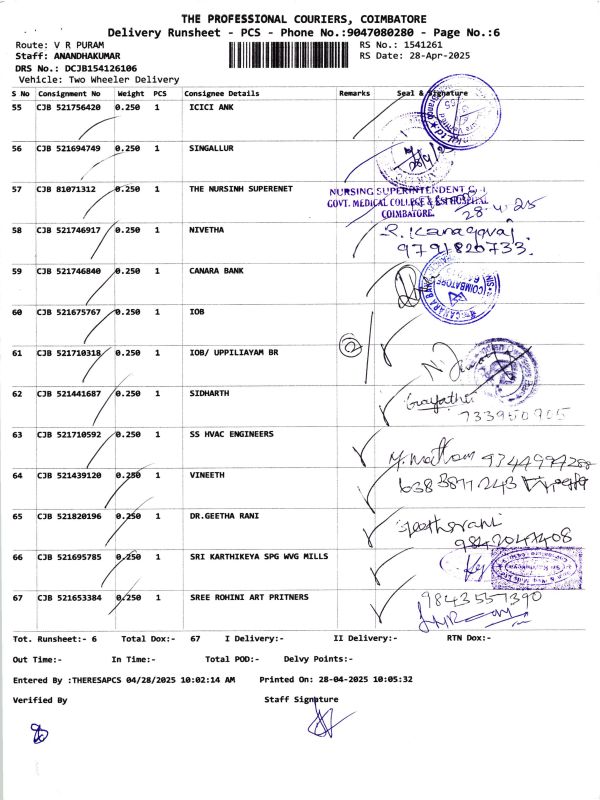 THE PROFESSIONAL COURIERS, COIMBATORE
Delivery Runsheet - PCS - Phone No.:9047080280 - Page No.:6
Route: V R PURAM RS No.: 1541261
Staff: ANANDHAKUMAR RS Date: 28-Apr-2025
DRS No.: DCJB154126106
Vehicle: Two Wheeler Delivery
S No Consignment No Weight PCS Consignee Details Remarks Seal & Signature
55 CJB 521756420 0.250 1 ICICI ANK
56 CJB 521694749 0.250 1 SINGALLUR
57 CJB 81071312 0.250 1 THE NURSINH SUPERENET
NURSING SUPERINTENDENT G-I
GOVT. MEDICAL COLLEGE & ESI HOSPITAL
COIMBATORE. 28.4.25
58 CJB 521746917 0.250 1 NIVETHA R. Kanagaraj
9791820733
59 CJB 521746840 0.250 1 CANARA BANK CANARA BANK COIMBATORE
60 CJB 521675767 0.250 1 IOB
61 CJB 521710318 0.250 1 IOB/ UPPILIAYAM BR
62 CJB 521441687 0.250 1 SIDHARTH Gayathri
63 CJB 521710592 0.250 1 SS HVAC ENGINEERS
64 CJB 521439120 0.250 1 VINEETH
65 CJB 521820196 0.250 1 DR.GEETHA RANI Geetharani
9842047408
66 CJB 521695785 0.250 1 SRI KARTHIKEYA SPG WVG MILLS
67 CJB 521653384 0.250 1 SREE ROHINI ART PRITNERS 9843557390
Tot. Runsheet:- 6 Total Dox:- 67 I Delivery:- II Delivery:- RTN Dox:-
Out Time:- In Time:- Total POD:- Delvy Points:-
Entered By :THERESAPCS 04/28/2025 10:02:14 AM Printed On: 28-04-2025 10:05:32
Verified By Staff Signature